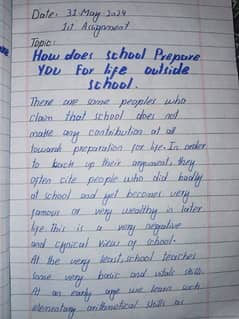 Date: 31 May 2024
1st Assignment
Topic:
How does school Prepare
You For life outside
school.
There are some peoples who
claim that school does not
make any contribution at all
towards preparation for life. In order
to back up their arguments, they
often cite people who did badly
at school and yet becomes very
famous or very wealthy in later
life. This is a very negative
and cynical view of school.
At the very least, school teaches
some very basic and vitals skills.
At an early age we learn such
elementary arithmetical skills as